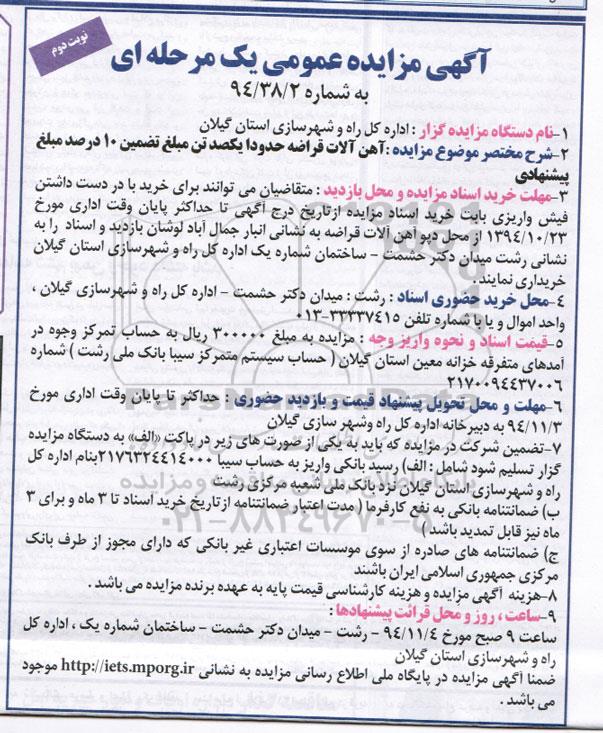 نوبت دوم
آگهی مزایده عمومی یک مرحله ای
به شماره ۹۴/۳۸/۲
۱-نام دستگاه مزایده گزار : اداره کل راه و شهرسازی استان گیلان
۲-شرح مختصر موضوع مزایده :آهن آلات قراضه حدودا یکصد تن مبلغ تضمین ۱۰ درصد مبلغ
پیشنهادی
۳-مهلت خرید اسناد مزایده و محل بازدید : متقاضیان می توانند برای خرید با در دست داشتن
فیش واریزی بابت خرید اسناد مزایده ازتاریخ درج آگهی تا حداکثر پایان وقت اداری مورخ
۱۳۹۴/۱۰/۲۳ از محل دپو آهن آلات قراضه به نشانی انبار جمال آباد لوشان بازدید و اسناد را به
نشانی رشت میدان دکتر حشمت - ساختمان شماره یک اداره کل راه و شهرسازی استان گیلان
خریداری نمایند.
۴-محل خرید حضوری اسناد : رشت : میدان دکتر حشمت - اداره کل راه و شهرسازی گیلان ،
واحد اموال و یا با شماره تلفن ۳۳۳۳۷۴۱۵-۰۱۳
۵-قیمت اسناد و نحوه واریز وجه : مزایده به مبلغ ۳۰۰۰۰۰ ریال به حساب تمرکز وجوه در
آمدهای متفرقه خزانه معین استان گیلان ( حساب سیستم متمرکز سیبا بانک ملی رشت ) شماره
۲۱۷۰۰۹۴۴۳۷۰۰۶
۶-مهلت و محل تحویل پیشنهاد قیمت و بازدید حضوری : حداکثر تا پایان وقت اداری مورخ
۹۴/۱۱/۳ به دبیرخانه اداره کل راه وشهر سازی گیلان
۷-تضمین شرکت در مزایده که باید به یکی از صورت های زیر در پاکت «الف» به دستگاه مزایده
گزار تسلیم شود شامل : الف) رسید بانکی واریز به حساب سیبا ۲۱۷۶۳۲۴۴۱۴۰۰۰بنام اداره کل
راه و شهرسازی استان گیلان نزد بانک ملی شعبه مرکزی رشت
ب) ضمانتنامه بانکی به نفع کارفرما ( مدت اعتبار ضمانتنامه ازتاریخ خرید اسناد تا ۳ ماه و برای ۳
ماه نیز قابل تمدید باشد )
ج) ضمانتنامه های صادره از سوی موسسات اعتباری غیر بانکی که دارای مجوز از طرف بانک
مرکزی جمهوری اسلامی ایران باشند
۸-هزینه آگهی مزایده و هزینه کارشناسی قیمت پایه به عهده برنده مزایده می باشد .
۹-ساعت ، روز و محل قرائت پیشنهادها :
ساعت ۹ صبح مورخ ۹۴/۱۱/۴ - رشت - میدان دکتر حشمت - ساختمان شماره یک ، اداره کل
راه و شهرسازی استان گیلان
ضمنا آگهی مزایده در پایگاه ملی اطلاع رسانی مزایده به نشانی http://iets.mporg.ir موجود
می باشد .
ParsNamadData
پایگاه اطلاع رسانی مناقصه ومزایده
۰۲۱-۸۸۳۴۹۶۷۰-۵